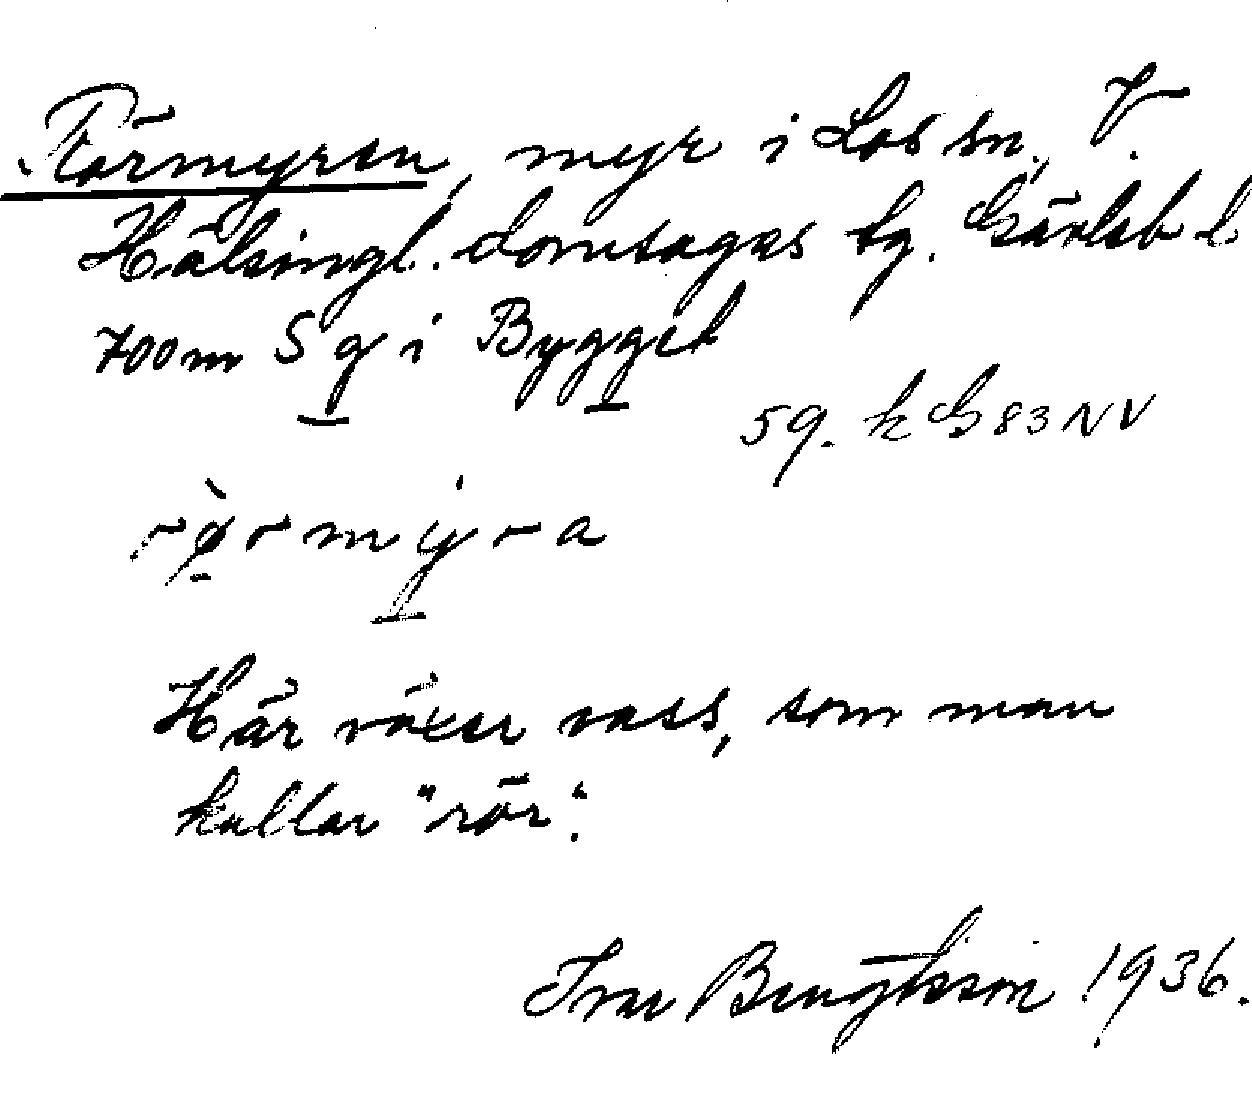 Rörmyren, myr i Los sn., V.
Hälsingl. domsagas tg. Gävleb l.
700m S g i Bygget
59. k G 83 NV
rø̀rmyra
Här växer vass, som man
kallar "rör".
Ivar Bengtsson 1936.